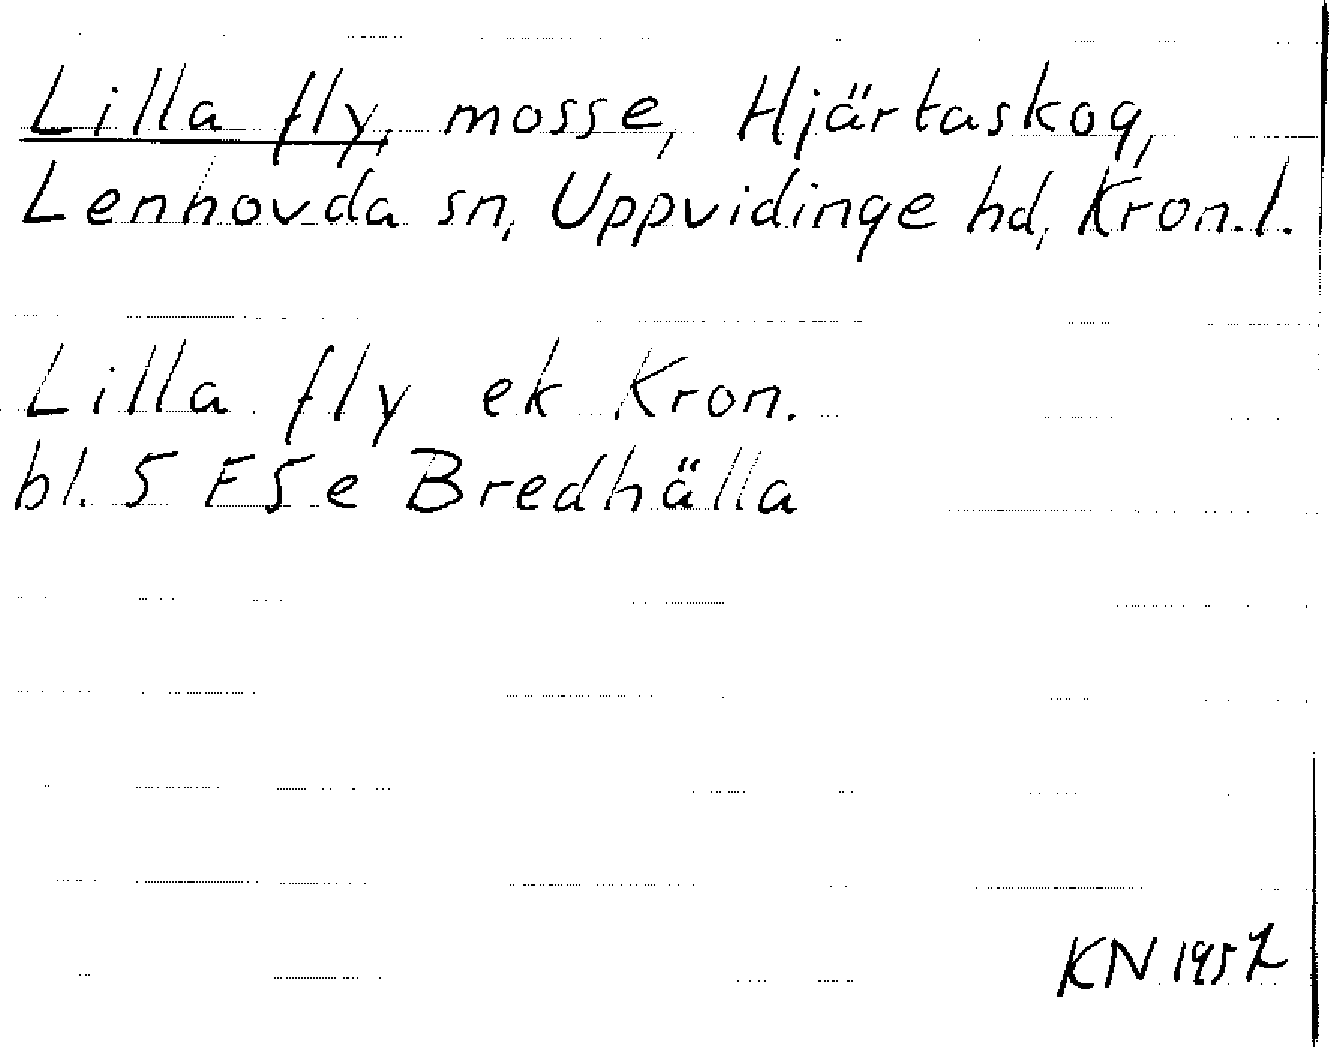 Lilla fly, mosse, Hjärtaskog,
Lenhovda sn, Uppvidinge hd, Kron.l.
Lilla fly ek Kron.
bl. 5 FSe Bredhälla
KN 1957